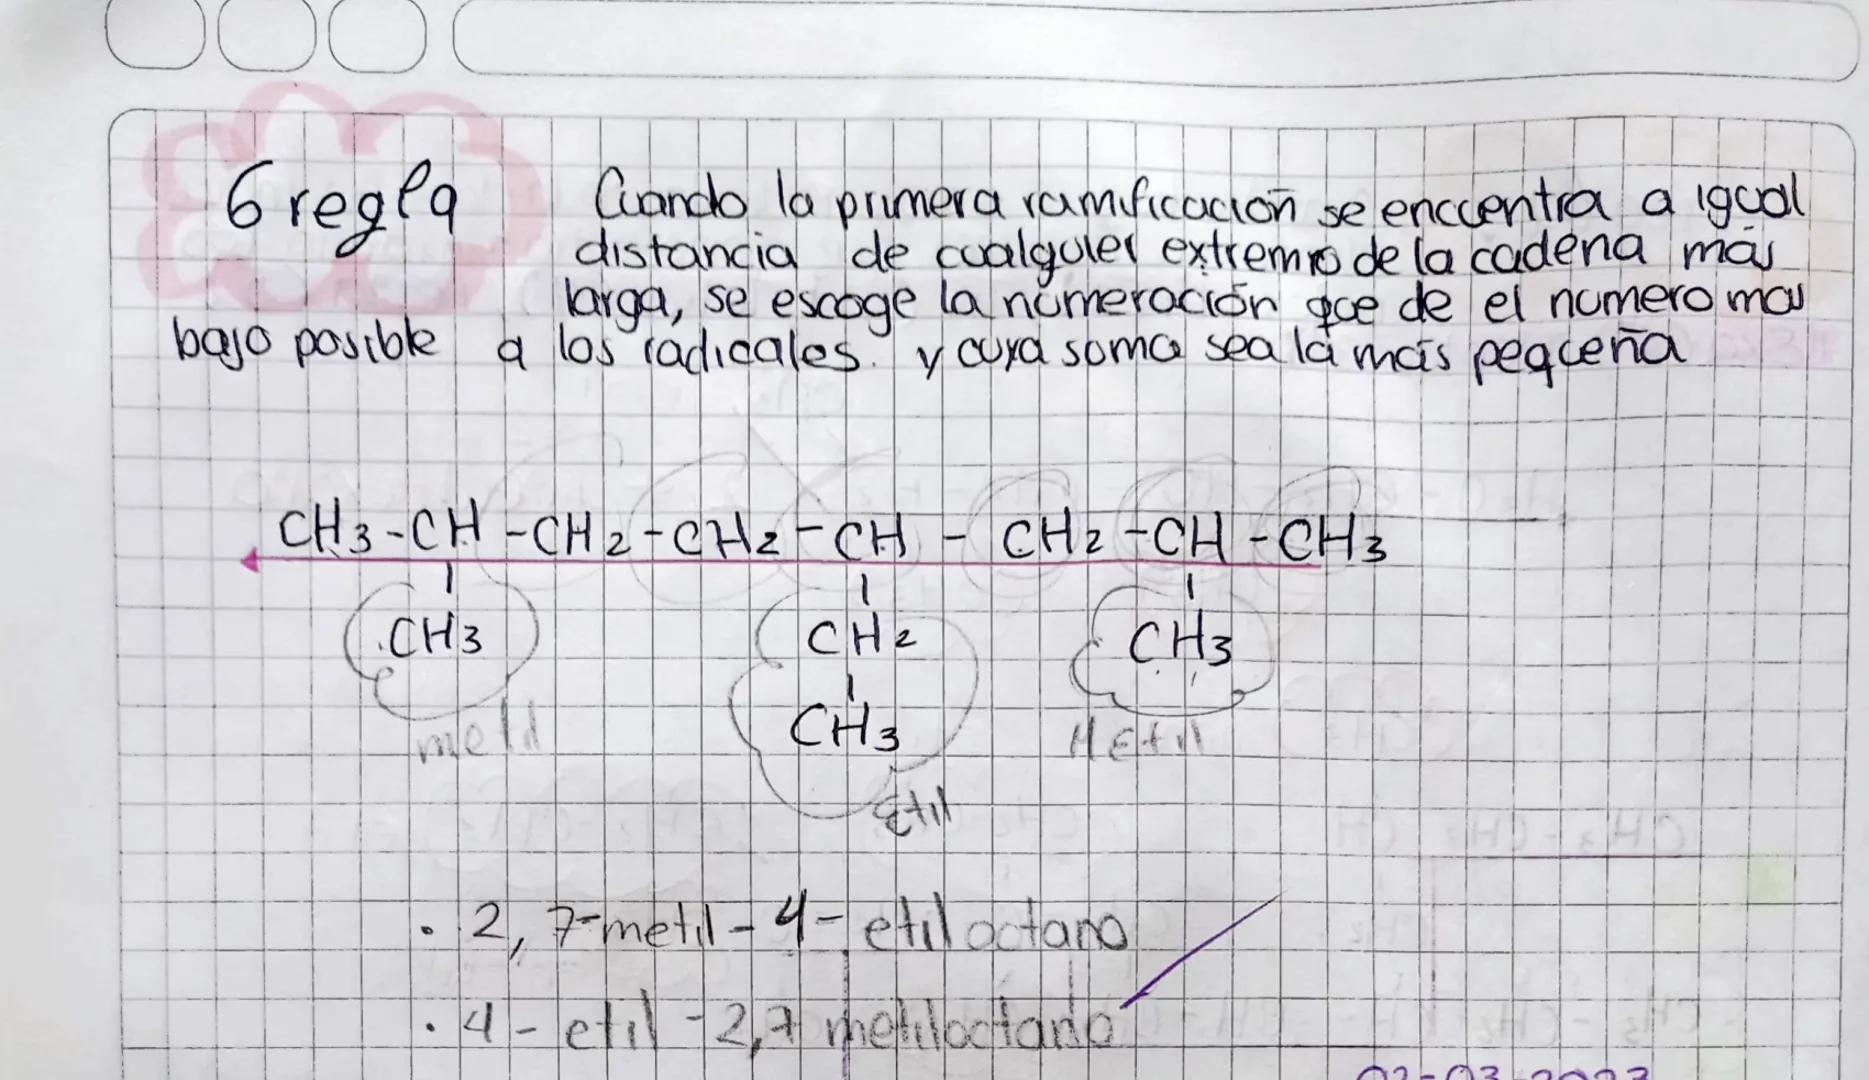 6 regla
Cuando la primera ramificación se encuentra a igual
distancia de cualquier extremo de la cadena más
larga, se escoge la númeración que de el numero mas
bajo posible a los radicales. y cuya soma sea la más pequeña
CH3-CH-CH2-CH2-CH-CH2-CH-CH3
CH3 CH2 CH3
CH3
metil Etil METIL
. 2, 7-metil-4-etil octano
. 4-etil-2,7 metiloctano
02-03-2023